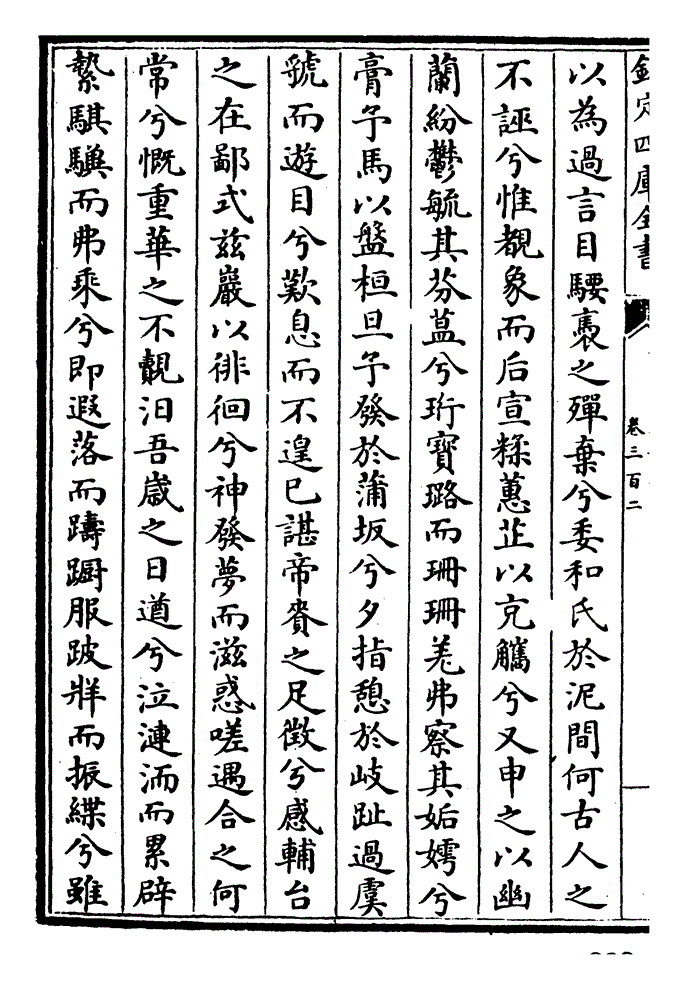 欽定四庫全書
卷三百二
以為過言目騕褭之殫棄兮委和氏於泥間何古人之
不誣兮惟覩象而后宣糅蕙芷以充觿兮又申之以幽
蘭紛鬱毓其芬蒀兮珩寶璐而珊珊羌弗察其姤嫮兮
膏予馬以盤桓旦予發於蒲坂兮夕指憩於岐趾過虞
虢而遊目兮歎息而不遑已諶帝賚之足徵兮感輔台
之在鄙式兹巖以徘徊兮神發夢而滋惑嗟遇合之何
常兮慨重華之不覿汨吾歳之日遒兮泣漣洏而累辟
縶騏驥而弗乘兮即遐落而躊蹰服跛牂而振緤兮雖